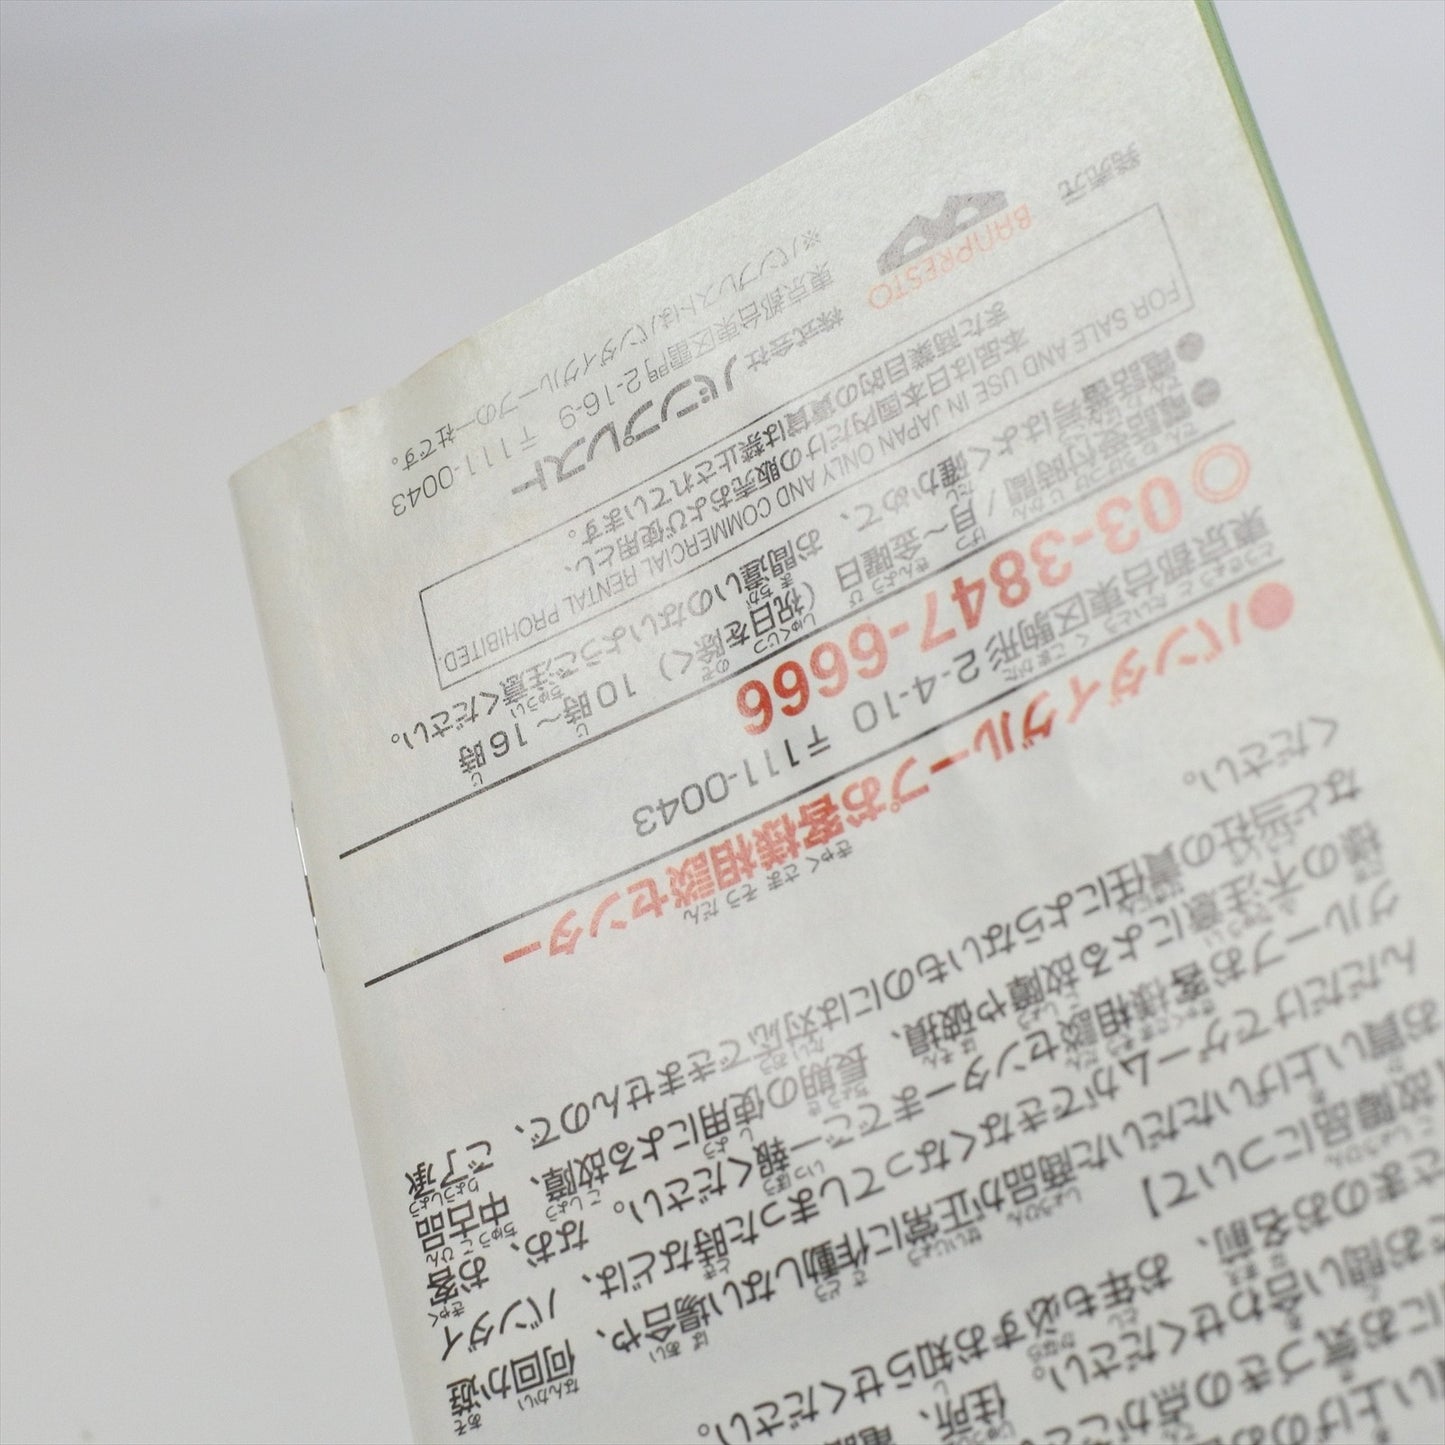 い上げのお
にお気づきの点がござ
お問い合わせください。住所、電
さまのお名前、お年も必ずお知らせください。
故障品について】
お買い上げいただいた商品が正常に作動しない場合や、何回か遊
んだだけでゲームができなくなってしまった時などは、バンダイ
グループお客様相談センターまでご一報ください。なお、お客
様の不注意による故障や破損、長期の使用による故障、中古品
など当社の責任によらないものには対応できませんので、ご了承
ください。
●バンダイグループお客様相談センター
東京都台東区駒形2-4-10 〒111-0043
◎03-3847-6666
●電話受付時間/月〜金曜日(祝日を除く)10時〜16時
●電話番号はよく確かめて、お間違いのないようご注意ください。
FOR SALE AND USE IN JAPAN ONLY AND COMMERCIAL RENTAL PROHIBITED.
本品は日本国内だけの販売および使用とし、
また商業目的の賃貸は禁止されています。
発売元
BANPRESTO
株式会社バンプレスト
東京都台東区雷門2-16-9 〒111-0043
※バンプレストはバンダイグループの一社です。